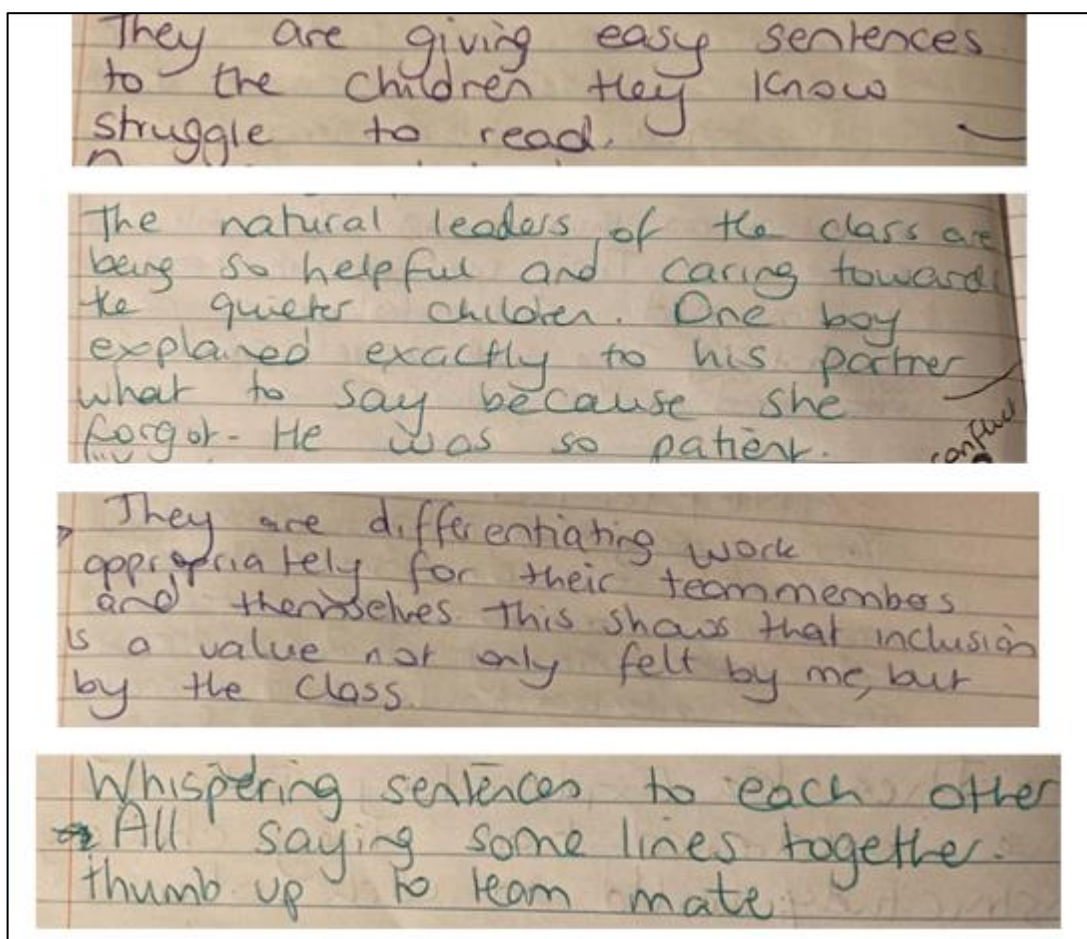 They are giving easy sentences
to the children they know
struggle to read.
The natural leaders of the class are
being so helpful and caring toward
the quieter children. One boy
explained exactly to his partner
what to say because she
forgot - He was so patient.
conflict
They are differentiating work
appropriately for their teammembers
and themselves. This shows that inclusion
is a value not only felt by me, but
by the class.
Whispering sentences to each other
All saying some lines together.
thumb up to team mate